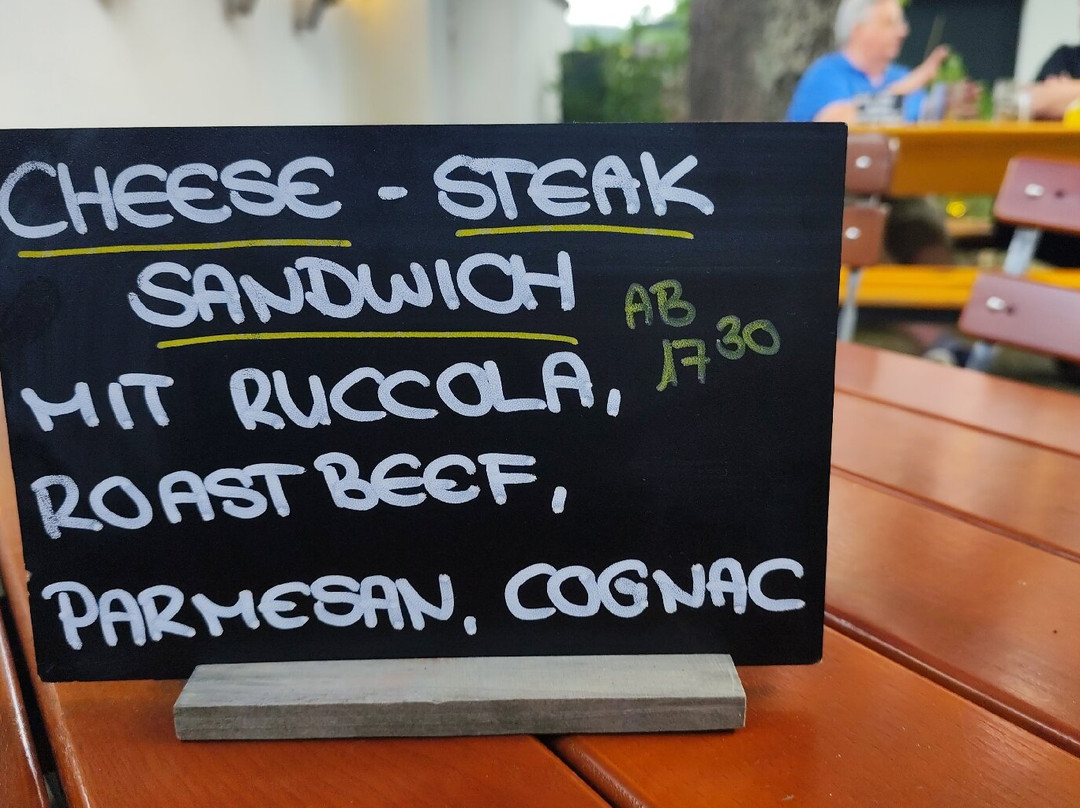 CHEESE - STEAK
SANDWICH
AB
17 30
MIT RUCCOLA,
ROASTBEEF,
PARMESAN, COGNAC